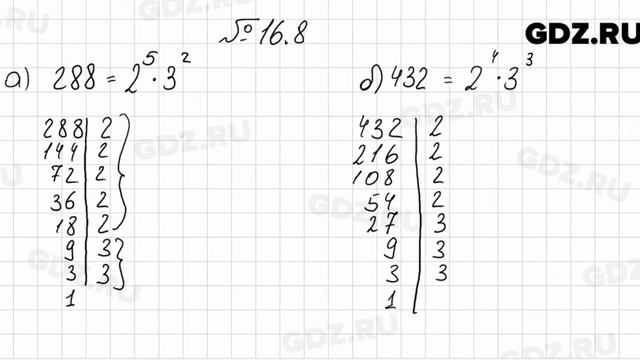 №16.8
GDZ.RU
а) 288 = 2⁵·3²
288 | 2
144 | 2
72 | 2
36 | 2
18 | 2
9 | 3
3 | 3
1
б) 432 = 2⁴·3³
432 | 2
216 | 2
108 | 2
54 | 2
27 | 3
9 | 3
3 | 3
1
GDZ.RU
GDZ.RU
GDZ.RU
GDZ.RU
GDZ.RU
GDZ.RU
GDZ.RU